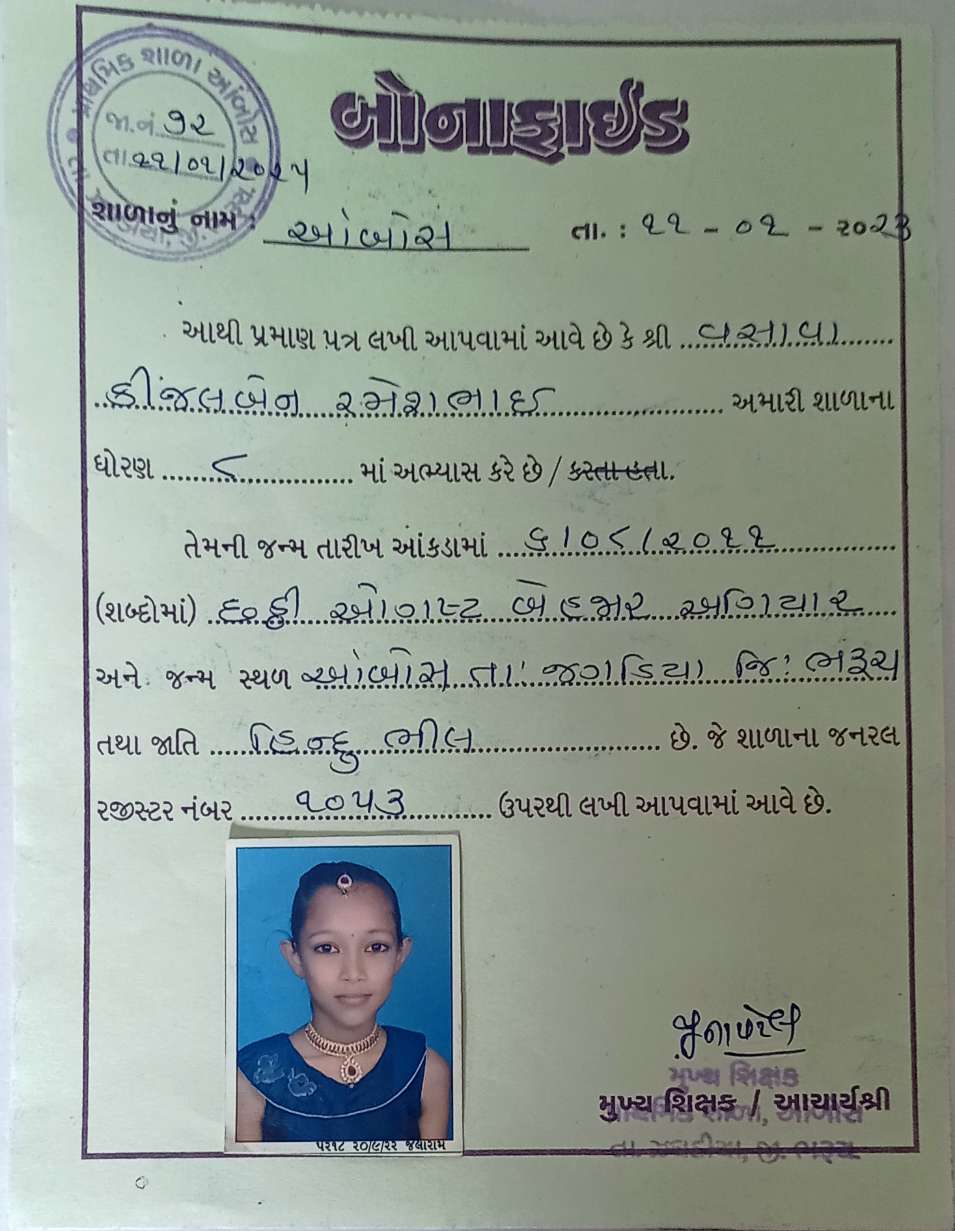 બોનાફાઈડ
પ્રાથમિક શાળા આંબોસ
જા.નં ૧૨
તા ૨૧/૦૧/૨૦૨૫
શાળાનું નામ : આંબોસ તા. : ૨૧ - ૦૧ - ૨૦૨૩
આથી પ્રમાણ પત્ર લખી આપવામાં આવે છે કે શ્રી વસાવા
કીંજલબેન રમેશભાઈ અમારી શાળાના
ધોરણ ૮ માં અભ્યાસ કરે છે / કરતા હતા.
તેમની જન્મ તારીખ આંકડામાં ૬/૦૮/૨૦૧૧
(શબ્દોમાં) છઠ્ઠી ઓગષ્ટ બેહજાર અગિયાર
અને જન્મ સ્થળ આંબોસ તા: જગડિયા જિ: ભરૂચ
તથા જાતિ હિન્દુ ભીલ છે. જે શાળાના જનરલ
રજીસ્ટર નંબર ૧૦૫૩ ઉપરથી લખી આપવામાં આવે છે.
૫૨૧૮ ૨૦/૯/૨૨ જલારામ
મુખ્ય શિક્ષક
મુખ્ય શિક્ષક / આચાર્યશ્રી
પ્રાથમિક શાળા, આંબોસ
તા. ઝઘડીયા, જી. ભરૂચ